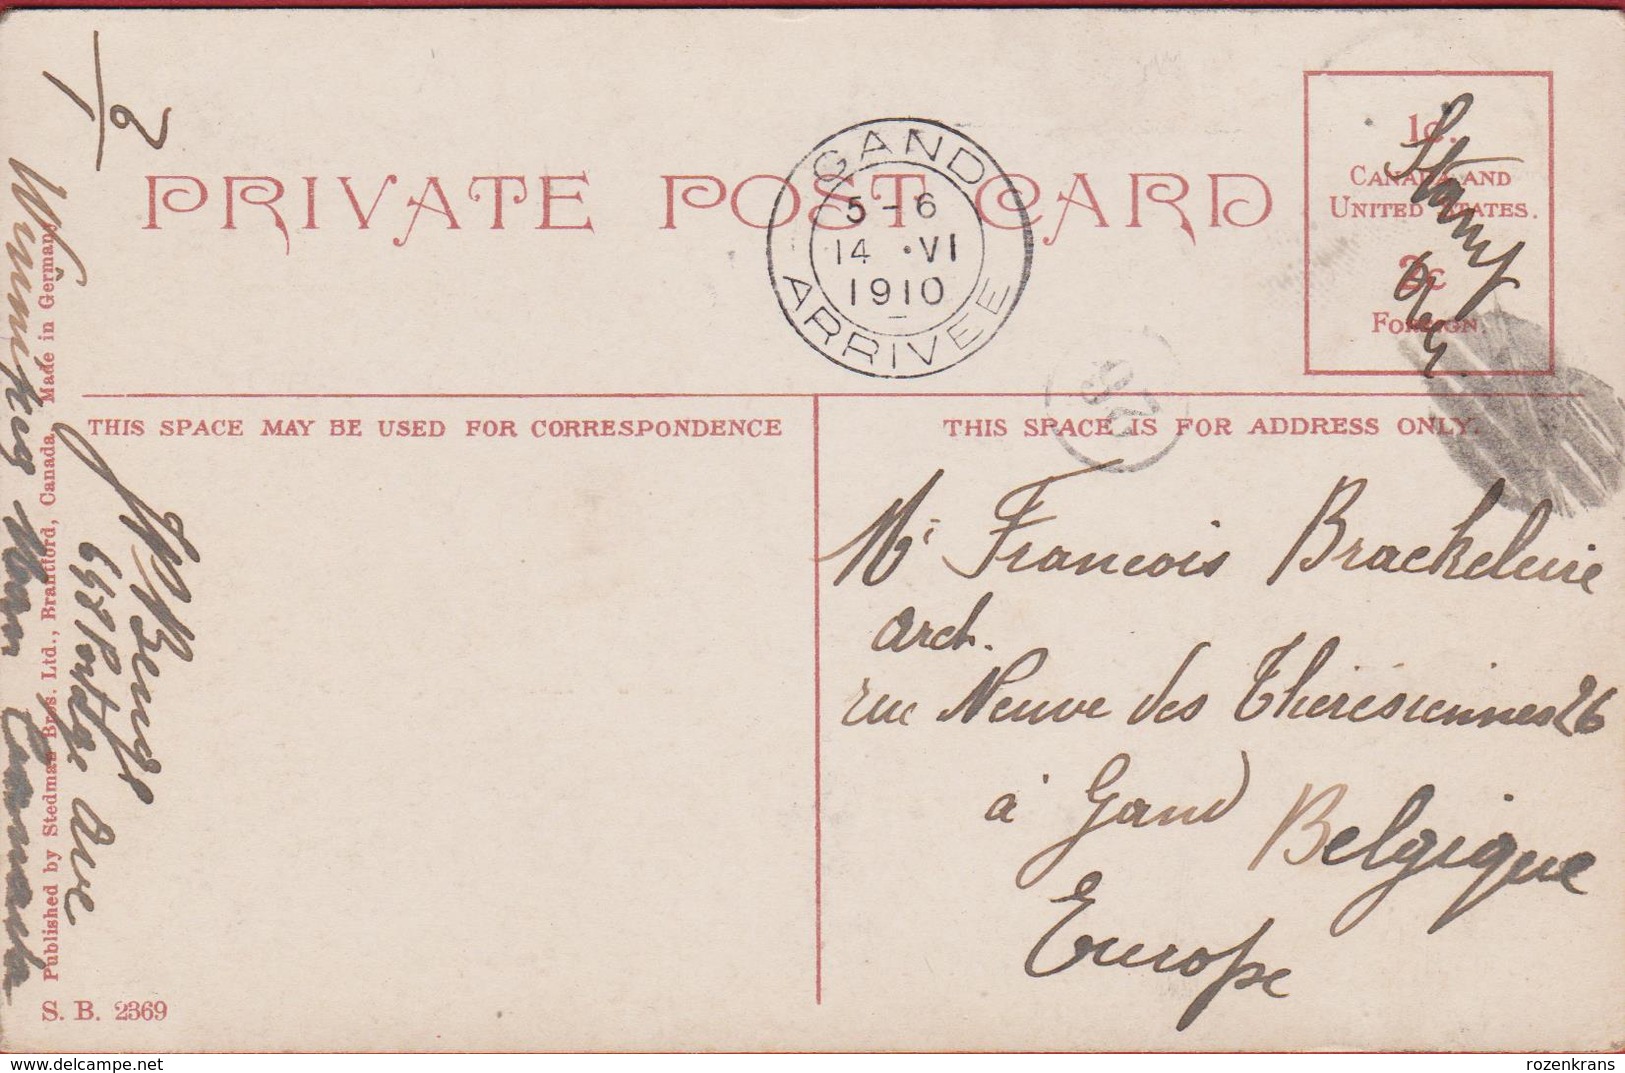 PRIVATE POST CARD
GAND
5-6
14 VI
1910
ARRIVEE
1c.
CANADA AND
UNITED STATES.
2c
FOREIGN.
Stamp
THIS SPACE MAY BE USED FOR CORRESPONDENCE
THIS SPACE IS FOR ADDRESS ONLY.
Mr Francois Brackeleire
arch.
rue Neuve des Theresiennes 26
à Gand
Belgique
Europe
658 Portage Ave
Winnipeg Man Canada
Published by Stedman Bros. Ltd., Brantford, Canada. Made in Germany
S. B. 2369
delcampe.net
rozenkrans